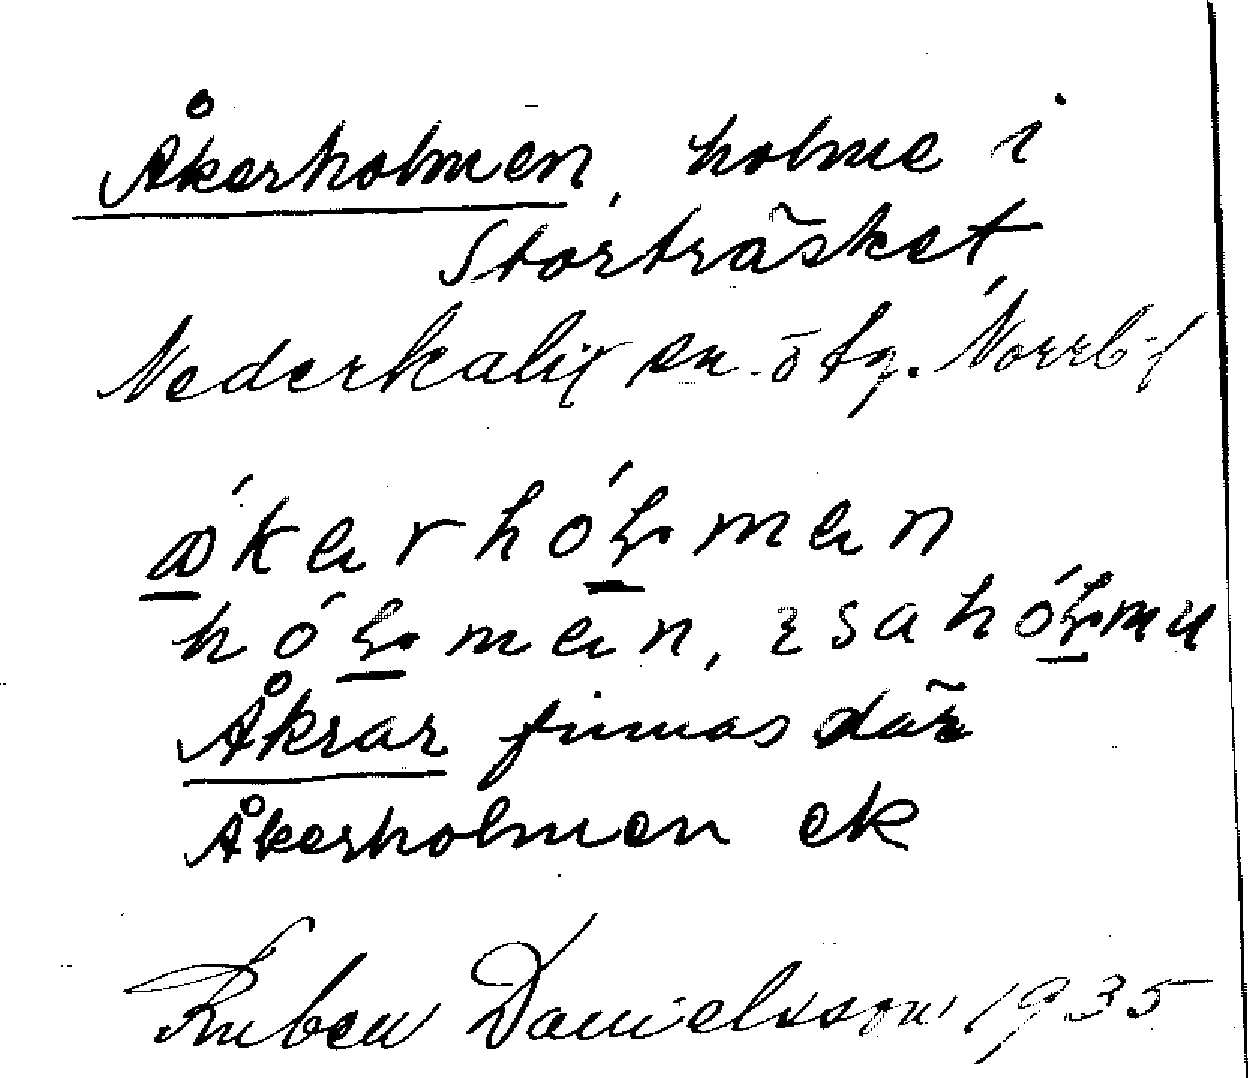 Åkerholmen, holme i
Storträsket
Nederkalix sn. ö tg. Norrb.
åkerhólmen
hólmen,
Åkrar finnas där
Åkerholmen ek
Ruben Danielsson 1935